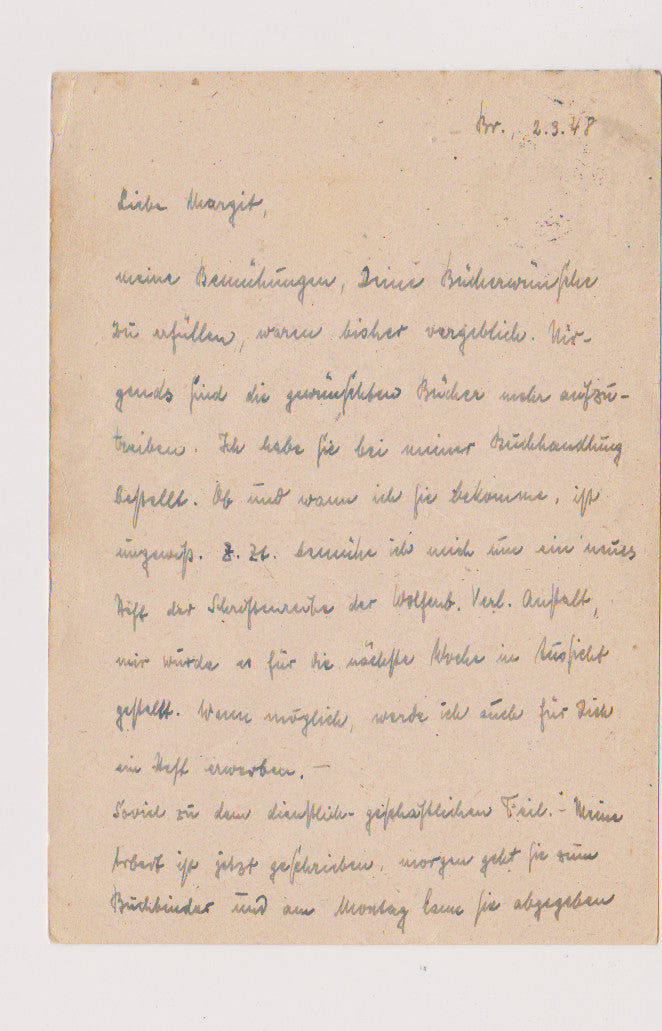 Br., 2.3.48
Liebe Margit,
meine Bemühungen, Deine Bücherwünsche
zu erfüllen, waren bisher vergeblich. Nir-
gends sind die gewünschten Bücher mehr aufzu-
treiben. Ich habe sie bei meiner Buchhandlung
bestellt. Ob und wann ich sie bekomme, ist
ungewiß. Z. Zt. bemühe ich mich um ein neues
Heft der Schriftenreihe der Wolfenb. Verl. Anstalt,
mir wurde es für die nächste Woche in Aussicht
gestellt. Wenn möglich, werde ich auch für Dich
ein Heft erwerben. —
Soviel zu dem dienstlich-geschäftlichen Teil. - Meine
Arbeit ist jetzt geschrieben, morgen geht sie zum
Buchbinder und am Montag kann sie abgegeben